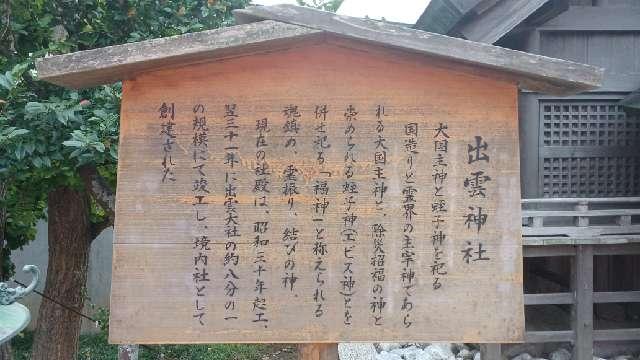 出雲神社
大国主神と蛭子神を祀る
国造りと霊界の主宰神であら
れる大国主神と、除災招福の神と
崇められる蛭子神(エビス神)とを
併せ祀る「福神」と称えられる
魂鎮め、霊振り、結びの神、
現在の社殿は、昭和三十年起工、
翌三十一年に出雲大社の約八分の一
の規模にて竣工し、境内社として
創建された